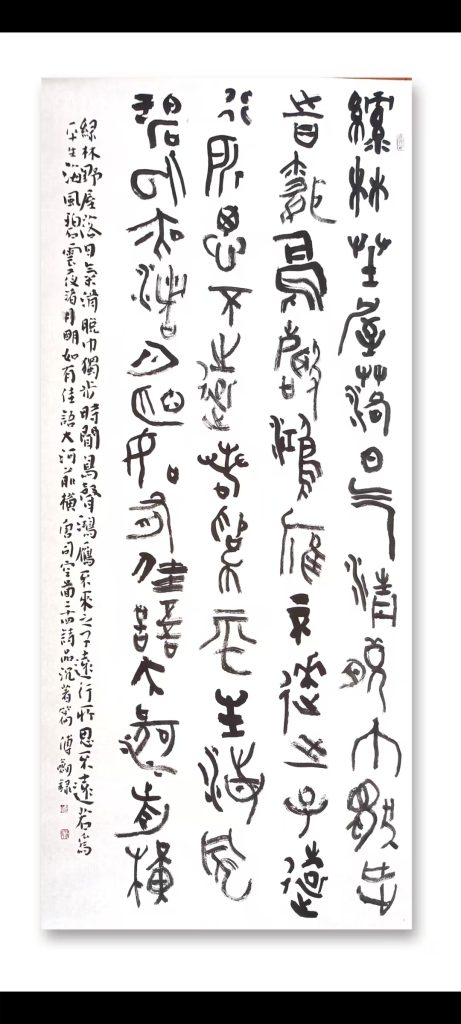 綠林埜屋落日气清脫巾獨步
時聞鳥聲鴻雁不來之子遠
行所思不遠若為平生海風
碧雲夜渚月明如有佳語大河前橫
綠林野屋落日氣清脫巾獨步時聞鳥聲鴻雁不來之子遠行所思不遠若為
平生海風碧雲夜渚月明如有佳語大河前橫唐司空圖二十四詩品沉著篇傅錄